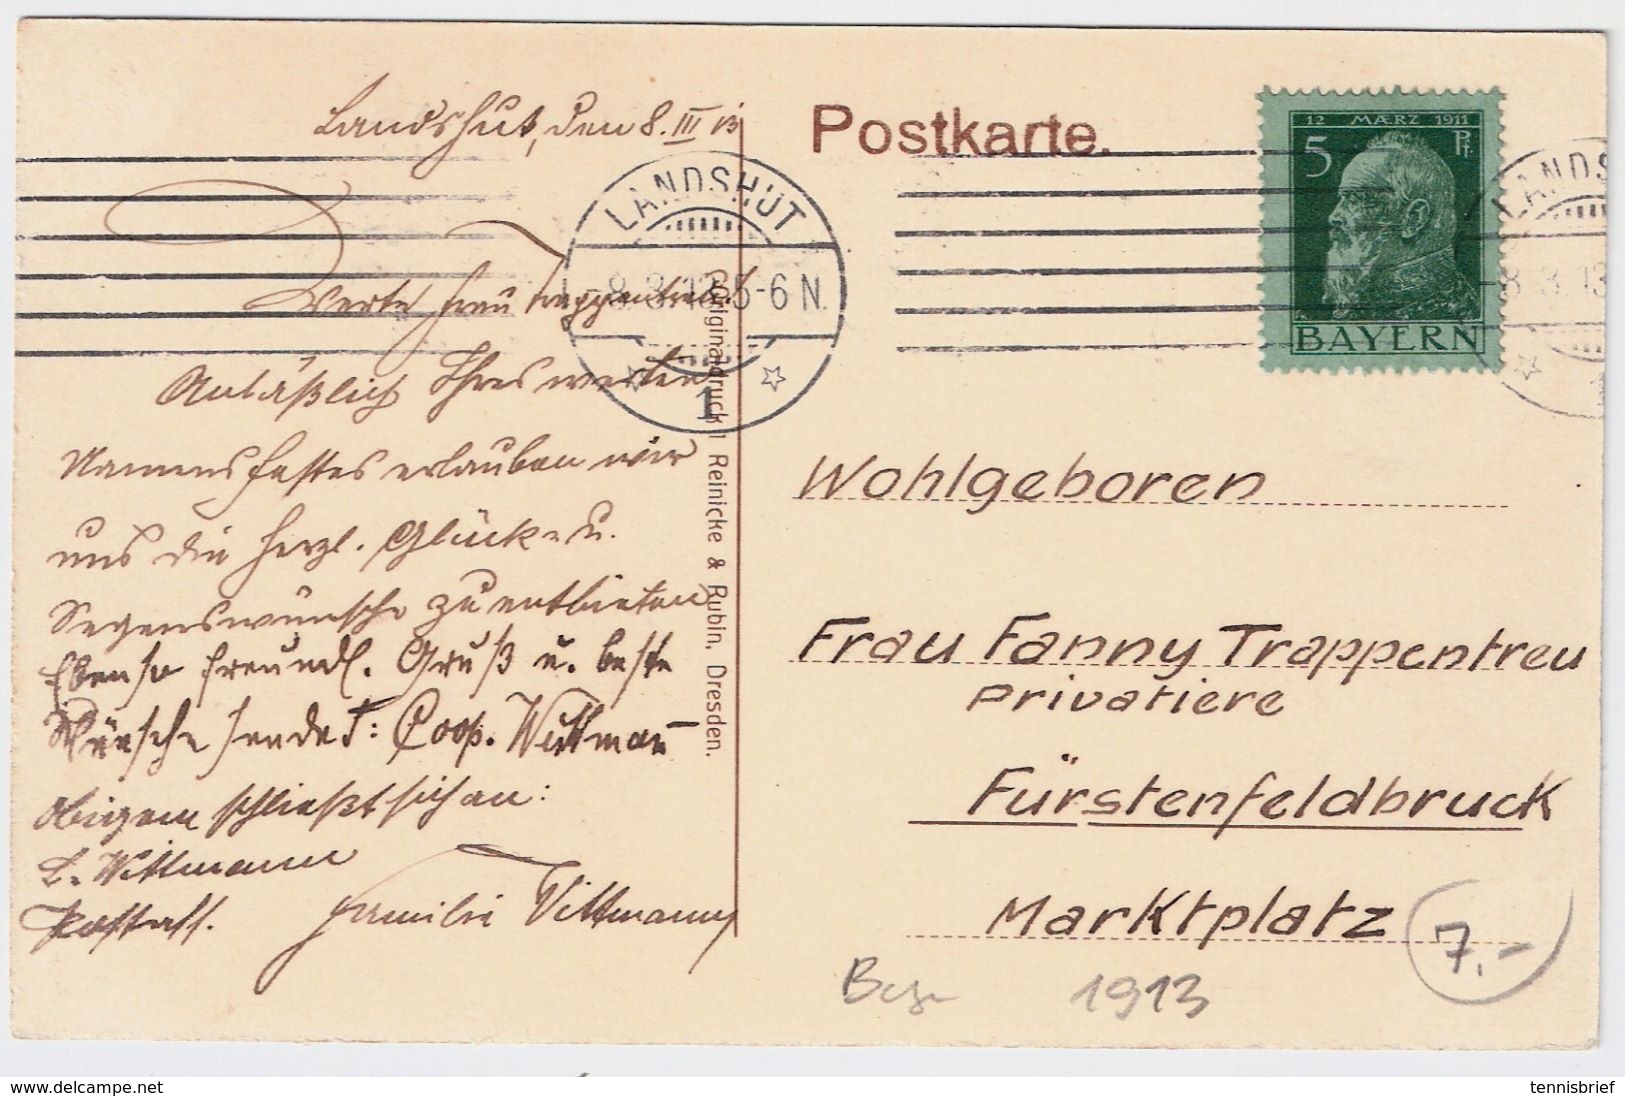 Landshut, den 8. III 13
Postkarte.
12 MÆRZ 1911
5 Pf.
BAYERN
LANDSHUT
-8.3.13.5-6 N.
1
LANDS
8.3.13
Werte Frau Trappentreu!
Anläßlich Ihres werten
Namensfestes erlauben wir
uns die herzl. Glück- u.
Segenswünsche zu entbieten
Ebenso freundl. Gruß u. beste
Wünsche sendet: Coop. Wittmann
Obigem schließt sich an:
L. Wittmann
Familie Wittmann
Original 
Reinicke & Rubin, Dresden.
Wohlgeboren
Frau Fanny Trappentreu
Privatiere
Fürstenfeldbruck
Marktplatz
7.-
1913
www.delcampe.net
tennisbrief